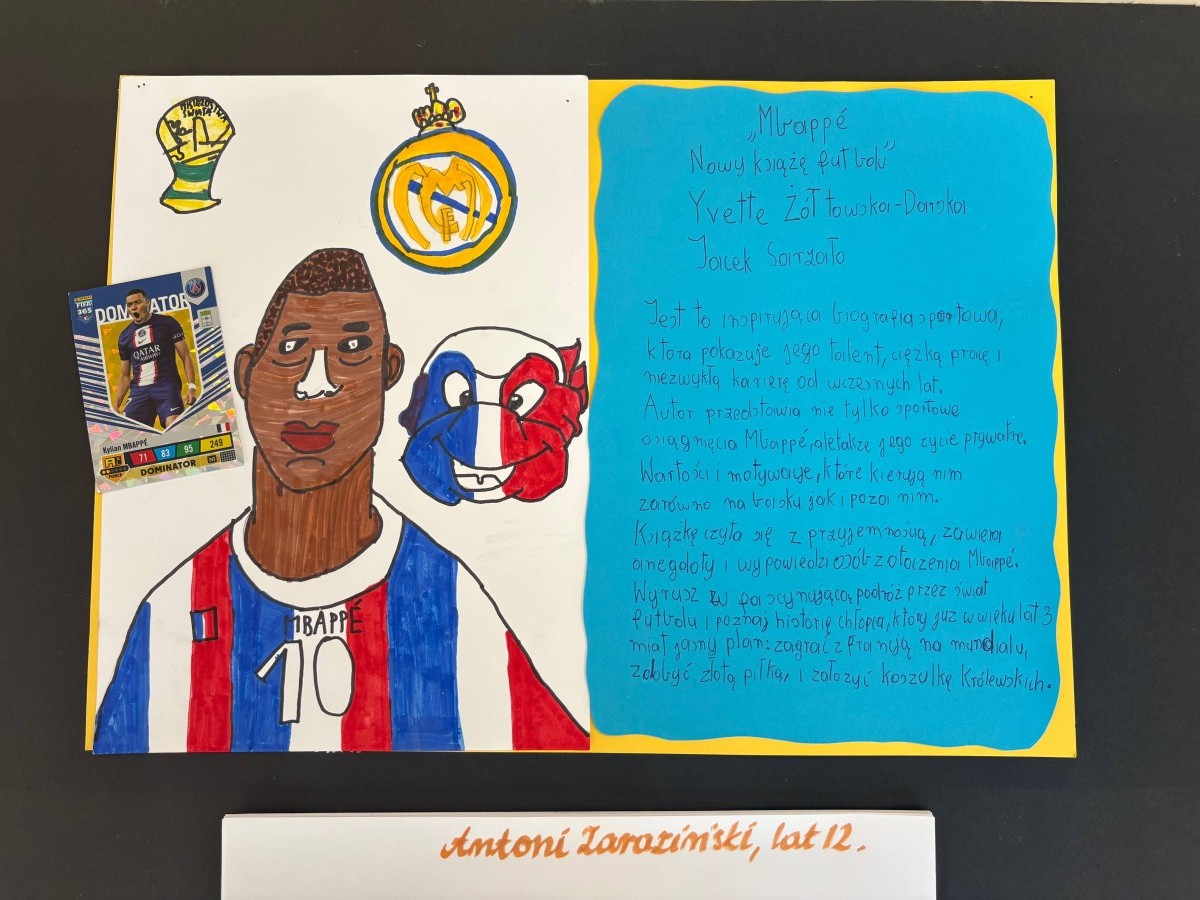 MISTRZOSTWA
ŚWIATA
PANINI
FIFA
365
DOMINATOR
QATAR
AIRWAYS
Kylian MBAPPÉ
71 83 95 249
POWER
DOMINATOR
MBAPPÉ
10
„Mbappé
Nowy książę futbolu”
Yvette Żółtowska-Darska
Jacek Sarzało
Jest to inspirująca biografia sportowa,
która pokazuje jego talent, ciężką pracę i
niezwykłą karierę od wczesnych lat.
Autor przedstawia nie tylko sportowe
osiągnięcia Mbappé, ale także jego życie prywatne.
Wartości i motywacje, które kierują nim
zarówno na boisku jak i poza nim.
Książkę czyta się z przyjemnością, zawiera
anegdoty i wypowiedzi osób z otoczenia Mbappé.
Wyrusz w fascynującą podróż przez świat
futbolu i poznaj historię chłopca, który już w wieku lat 3
miał jasny plan: zagrać z francją na mundialu,
zdobyć złotą piłkę, i założyć koszulkę Królewskich.
Antoni Zaraziński, lat 12.